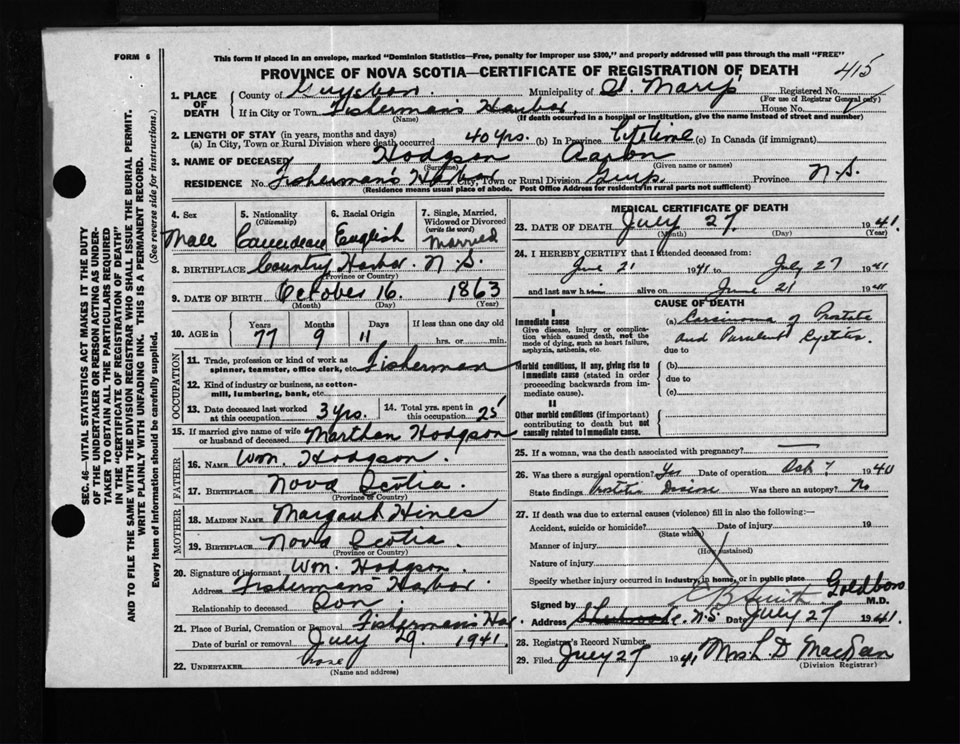 FORM 6
This form if placed in an envelope, marked "Dominion Statistics—Free, penalty for improper use $300," and properly addressed will pass through the mail "FREE"
PROVINCE OF NOVA SCOTIA—CERTIFICATE OF REGISTRATION OF DEATH
415
SEC. 46—VITAL STATISTICS ACT MAKES IT THE DUTY
OF THE UNDERTAKER OR PERSON ACTING AS UNDER-
TAKER TO OBTAIN ALL THE PARTICULARS REQUIRED
IN THE "CERTIFICATE OF REGISTRATION OF DEATH"
AND TO FILE THE SAME WITH THE DIVISION REGISTRAR WHO SHALL ISSUE THE BURIAL PERMIT.
WRITE PLAINLY WITH UNFADING INK. THIS IS A PERMANENT RECORD.
Every item of Information should be carefully supplied. (See reverse side for instructions.)
1. PLACE OF DEATH
County of Guysboro Municipality of St. Mary's Registered No.
(For use of Registrar General only)
If in City or Town Fisherman's Harbor House No.
(Name) (If death occurred in a hospital or institution, give the name instead of street and number)
2. LENGTH OF STAY (in years, months and days)
(a) In City, Town or Rural Division where death occurred 40 yrs. (b) In Province Lifetime (c) In Canada (if immigrant)
3. NAME OF DECEASED Hodgson Aaron
(Surname) (Given name or names)
RESIDENCE No. Fisherman's Harbor City, Town or Rural Division Guys. Province N.S.
(Residence means usual place of abode. Post Office Address for residents in rural parts not sufficient)
4. Sex
Male
5. Nationality
(Citizenship)
Canadian
6. Racial Origin
English
7. Single, Married, Widowed or Divorced
(write the word)
Married
8. BIRTHPLACE Country Harbor N.S.
(Province or Country)
9. DATE OF BIRTH October 16 1863
(Month) (Day) (Year)
10. AGE in Years Months Days If less than one day old
77 9 11 hrs. or min.
OCCUPATION
11. Trade, profession or kind of work as spinner, teamster, office clerk, etc. Fisherman
12. Kind of industry or business, as cotton-mill, lumbering, bank, etc.
13. Date deceased last worked at this occupation 3 yrs.
14. Total yrs. spent in this occupation 25
15. If married give name of wife or husband of deceased Marthan Hodgson
FATHER
16. NAME Wm. Hodgson
17. BIRTHPLACE Nova Scotia.
(Province or Country)
MOTHER
18. MAIDEN NAME Margaret Hines
19. BIRTHPLACE Nova Scotia.
(Province or Country)
20. Signature of informant Wm. Hodgson.
Address Fisherman's Harbor.
Relationship to deceased Son
21. Place of Burial, Cremation or Removal Fisherman's Har.
Date of burial or removal July 29. 1941
22. UNDERTAKER none
(Name and address)
MEDICAL CERTIFICATE OF DEATH
23. DATE OF DEATH July 27 1941.
(Month) (Day) (Year)
24. I HEREBY CERTIFY that I attended deceased from:
June 21 1941 to July 27 1941
and last saw him alive on June 21 1941
CAUSE OF DEATH
I
Immediate cause
Give disease, injury or complication which caused death, not the mode of dying, such as heart failure, asphyxia, asthenia, etc.
(a) Carcinoma of Prostate
and Purulent Cystitis
due to
Morbid conditions, if any, giving rise to immediate cause (stated in order proceeding backwards from immediate cause).
(b)
due to
(c)
II
Other morbid conditions (if important) contributing to death but not causally related to immediate cause.
25. If a woman, was the death associated with pregnancy?
26. Was there a surgical operation? Yes Date of operation 7 1940
State findings Disease Was there an autopsy? No
27. If death was due to external causes (violence) fill in also the following:—
Accident, suicide or homicide? Date of injury 19
(State which)
Manner of injury
(How sustained)
Nature of injury
Specify whether injury occurred in industry, in home, or in public place
Signed by C B Smith Goldboro M.D.
Address Sherbrooke. N.S Date July 27 1941.
28. Registrar's Record Number
29. Filed July 27 1941 Mrs L. D MacKeen
(Division Registrar)